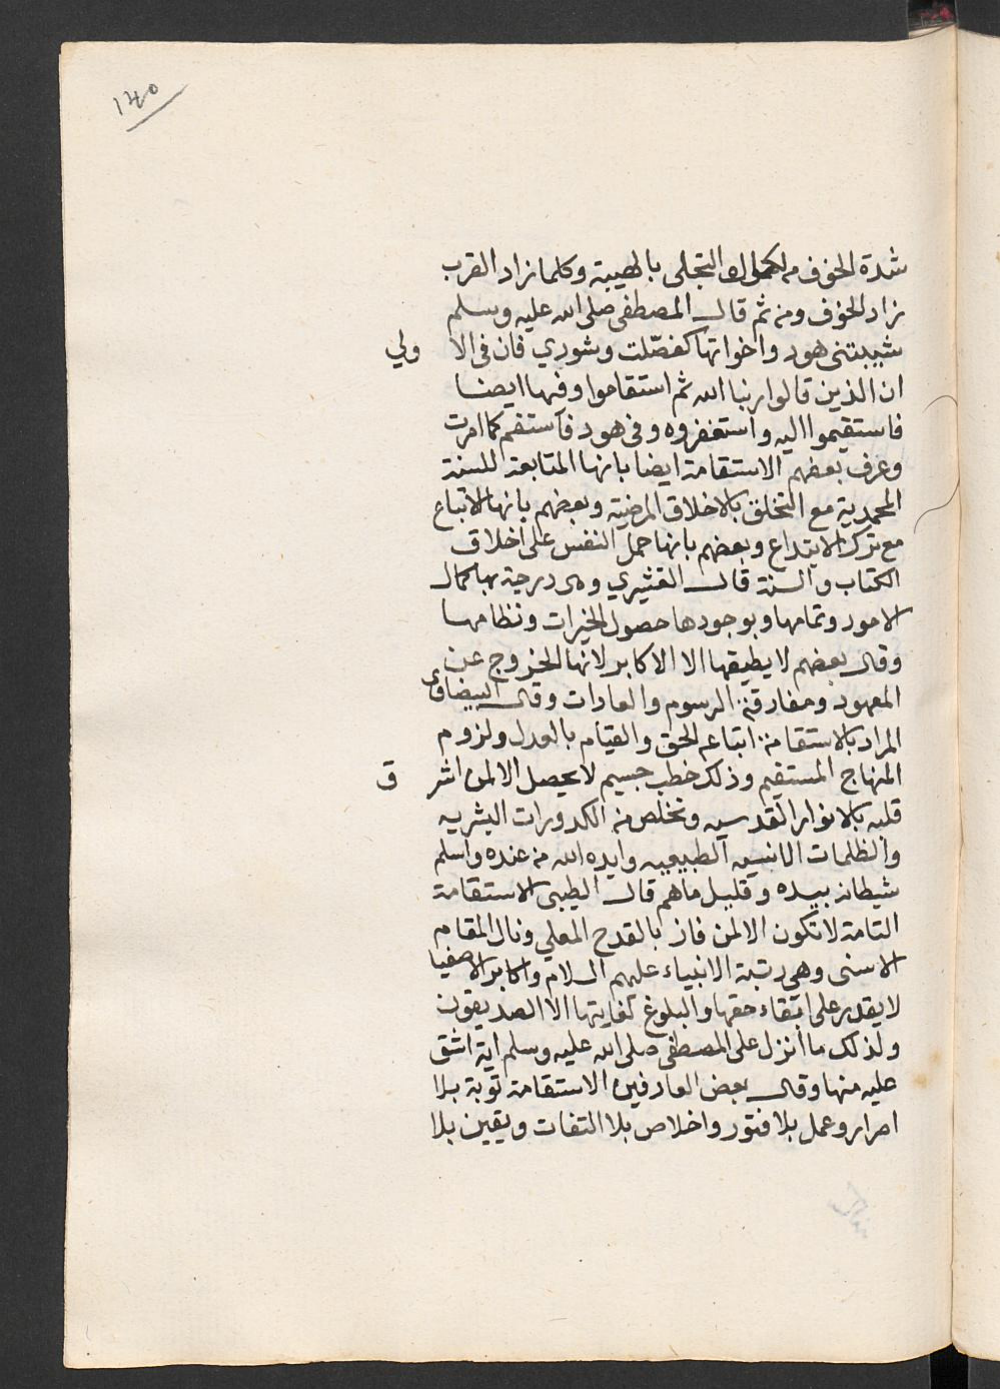 ١٤٠
شدة الخوف من لكمال التجلي بالهيبة وكلما زاد القرب
زاد الخوف ومن ثم قال المصطفى صلى الله عليه وسلم
شيبتني هود واخواتها كفصّلت وشوري فان في الاولي
ان الذين قالوا ربنا الله ثم استقاموا وفيها ايضا
فاستقيموا اليه واستغفروه وفي هود فاستقم كما امرت
وعرف بعضهم الاستقامة ايضا بانها المتابعة للسنة
المحمدية مع التخلق بالاخلاق المرضية وبعضهم بانها الاتباع
مع ترك الابتداع وبعضهم بانها حمل النفس على اخلاق
الكتاب والسنة قال القشيري وهى درجة بها كمال
الامور وتمامها وبوجودها حصول الخيرات ونظامها
وقال بعضهم لا يطيقها الا الاكابر لانها الخروج عن
المعهود ومفارقة الرسوم والعادات وقال البيضاوى
المراد بالاستقامة اتباع الحق والقيام بالعدل ولزوم
المنهاج المستقيم وذلك خطب جسيم لا يحصل الا لمن اشرق
قلبه بالانوار القدسيه وتخلص من الكدورات البشريه
والظلمات الانسيه الطبيعيه وايده الله من عنده واسلم
شيطانه بيده وقليل ماهم قال الطيبي الاستقامة
التامة لا تكون الا لمن فاز بالقدح المعلي ونال المقام
الاسنى وهي رتبة الانبياء عليهم السلام واكابر الاصفيا
لا يقدر على ايقاء حقها والبلوغ لغايتها الا الصديقون
ولذلك ما انزل على المصطفى صلى الله عليه وسلم اية اشق
عليه منها وقال بعض العارفين الاستقامة توبة بلا
اصرار وعمل بلا فتور واخلاص بلا التفات ويقين بلا